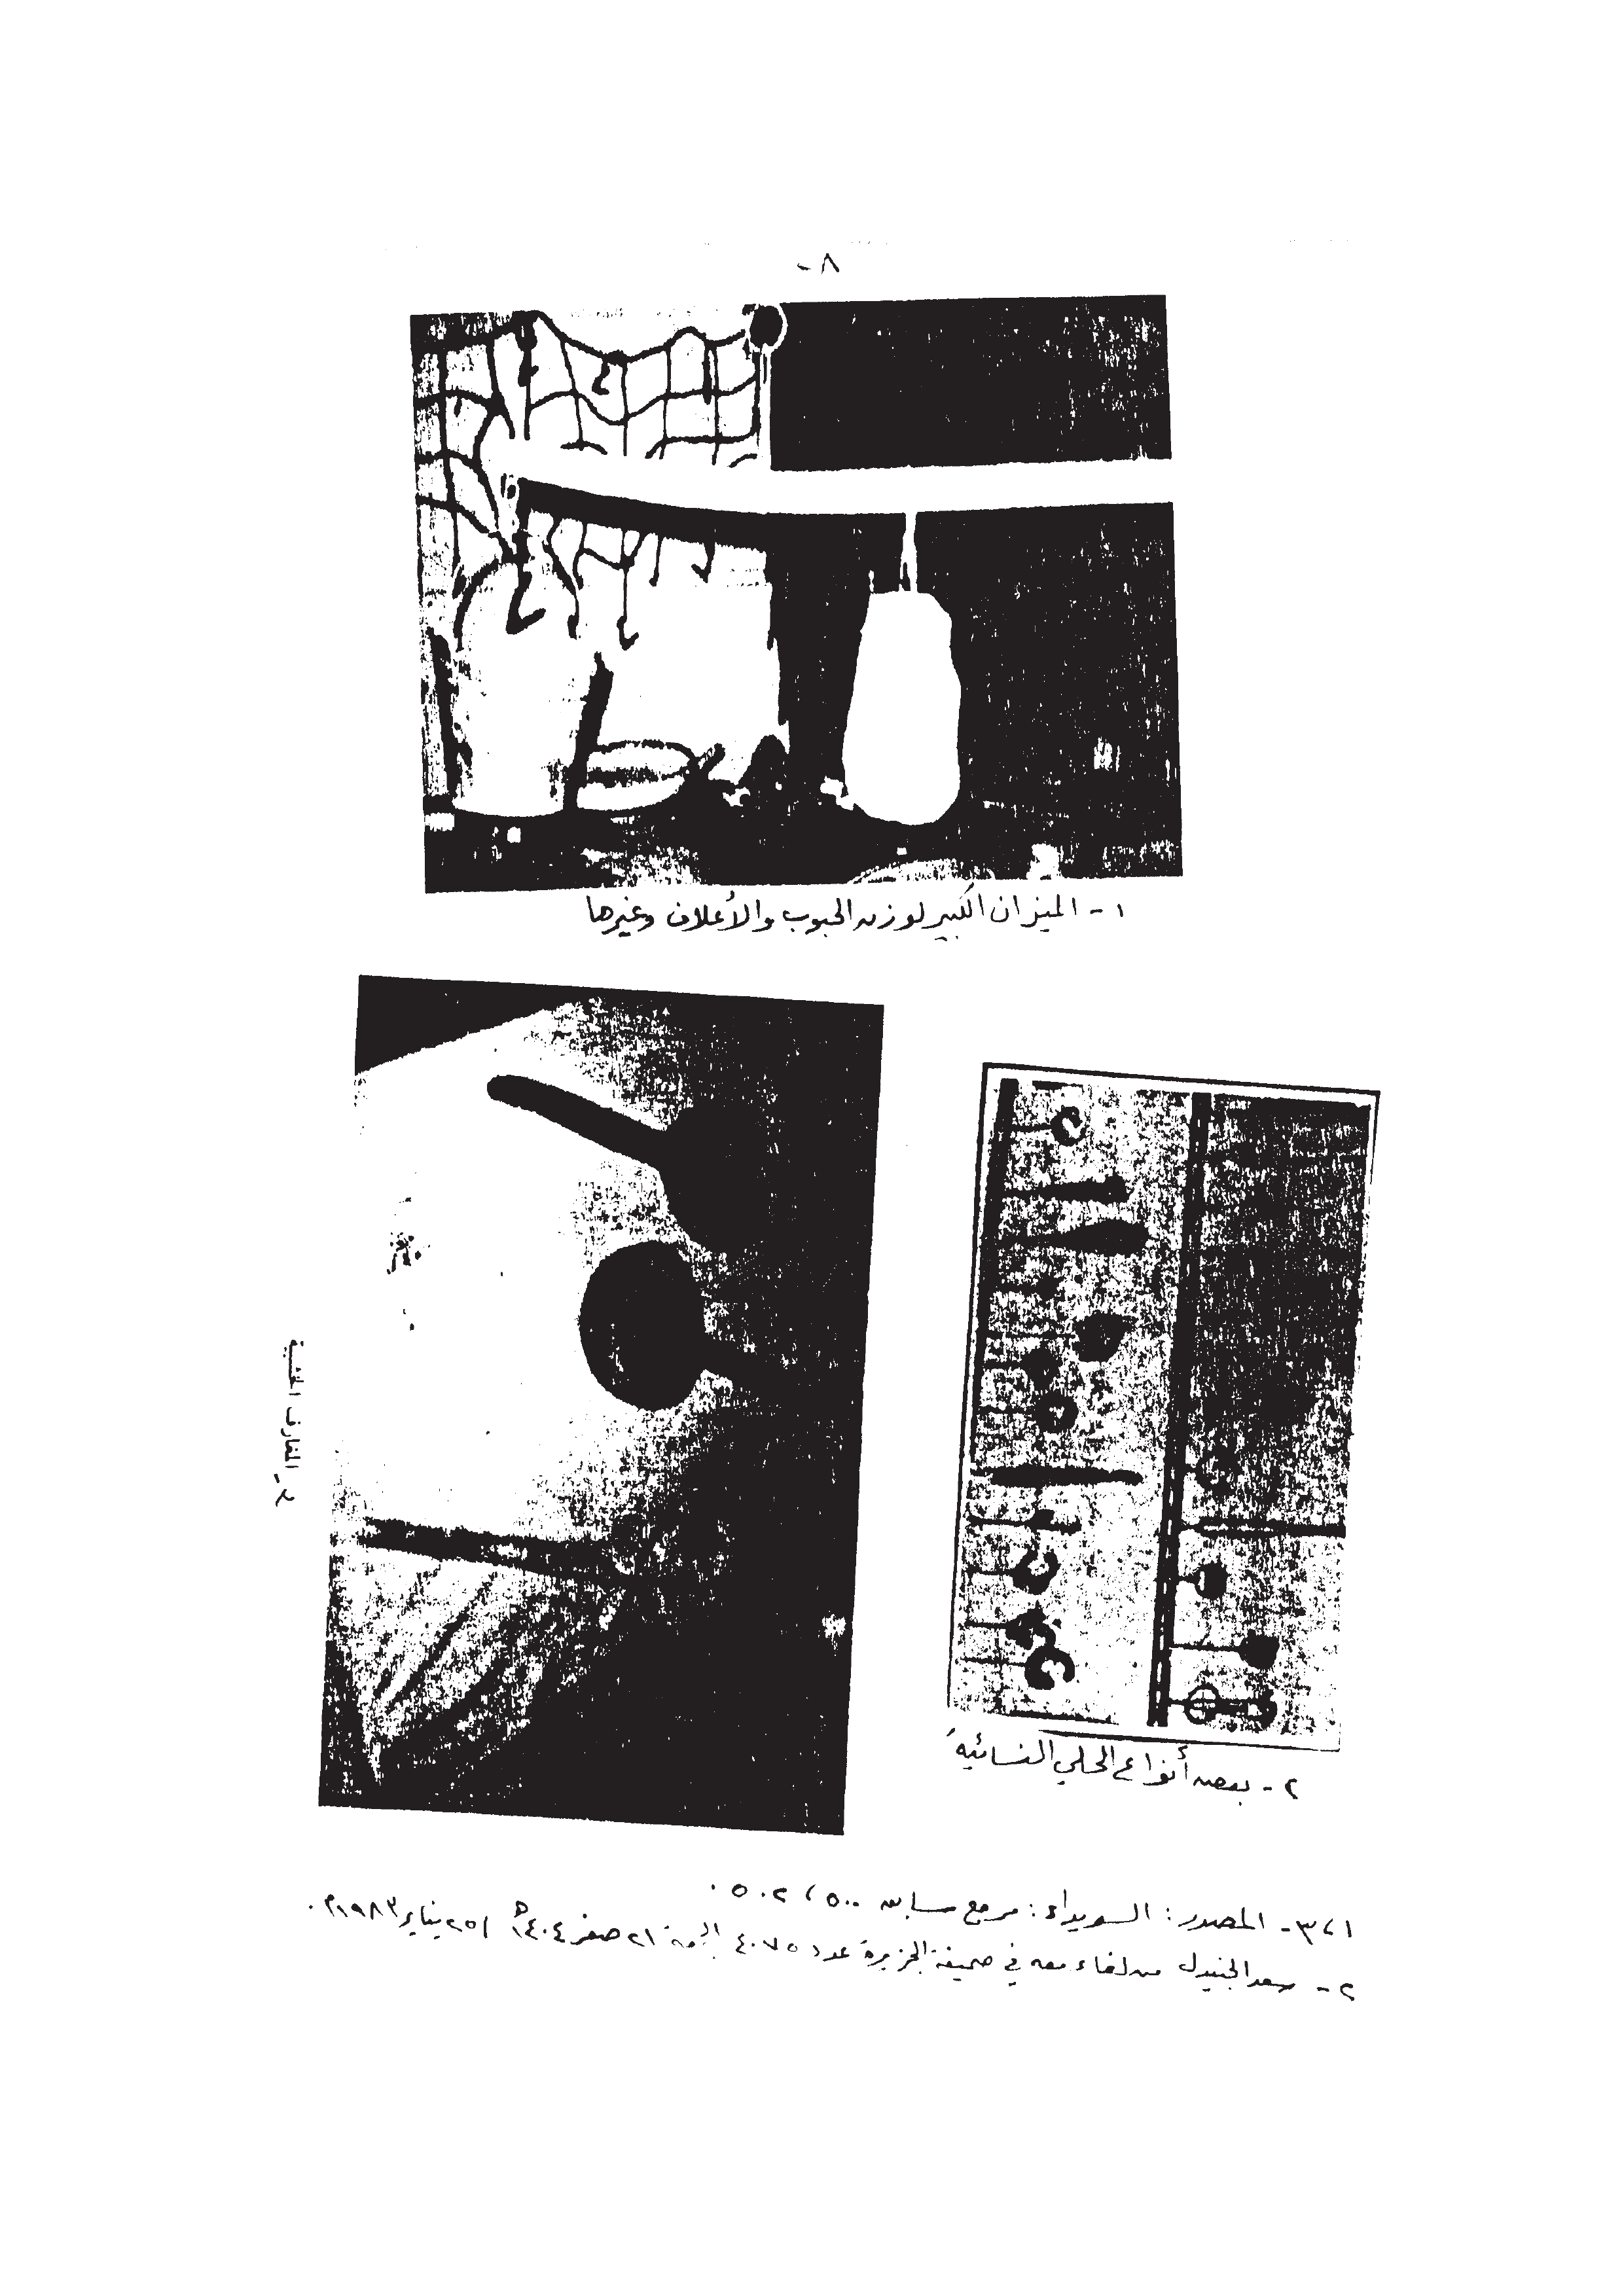 ٨-
١- الميزان الكبير لوزن الحبوب والأعلاف وغيرها
المغارف الخشبية
٢- بعض أنواع الحلي النسائية
١، ٣- المصدر: السويداء: مرجع سابق ٥٠٠، ٥٠٢.
٢- سعد الجنيدل من لقاء معه في صحيفة الجزيرة عدد ٤٠٧٥ الجمعة ٢١ صفر ١٤٠٤ه / ٢٥ يناير ١٩٨٣م.